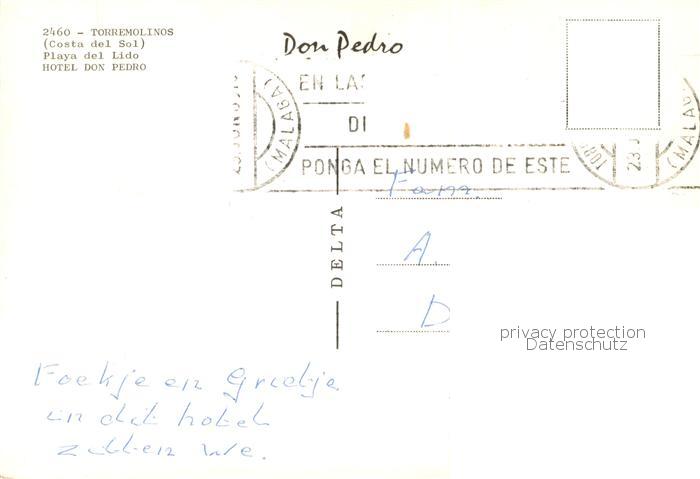 2460 - TORREMOLINOS
(Costa del Sol)
Playa del Lido
HOTEL DON PEDRO
Don Pedro
EN LAS
DI
PONGA EL NUMERO DE ESTE
(MALAGA)
(MALAGA)
Fam.
A.
D
DELTA
privacy protection
Datenschutz
Foekje en Grietje
in dit hotel
zitten we.